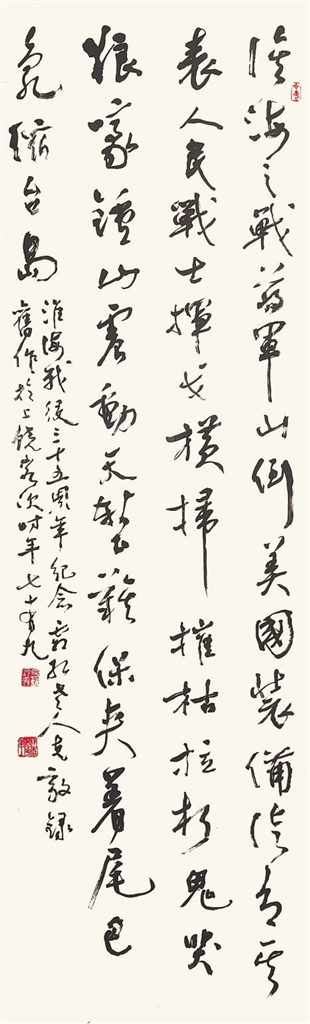 淮海之戰蔣軍山倒美國裝備徒有其
表人民戰士揮戈橫掃摧枯拉朽鬼哭
狼嚎鍾山震動天塹難保夾着尾巴
亂台島
淮海戰役三十五周年紀念老人克敵錄
舊作於上饒客次時年七十有九